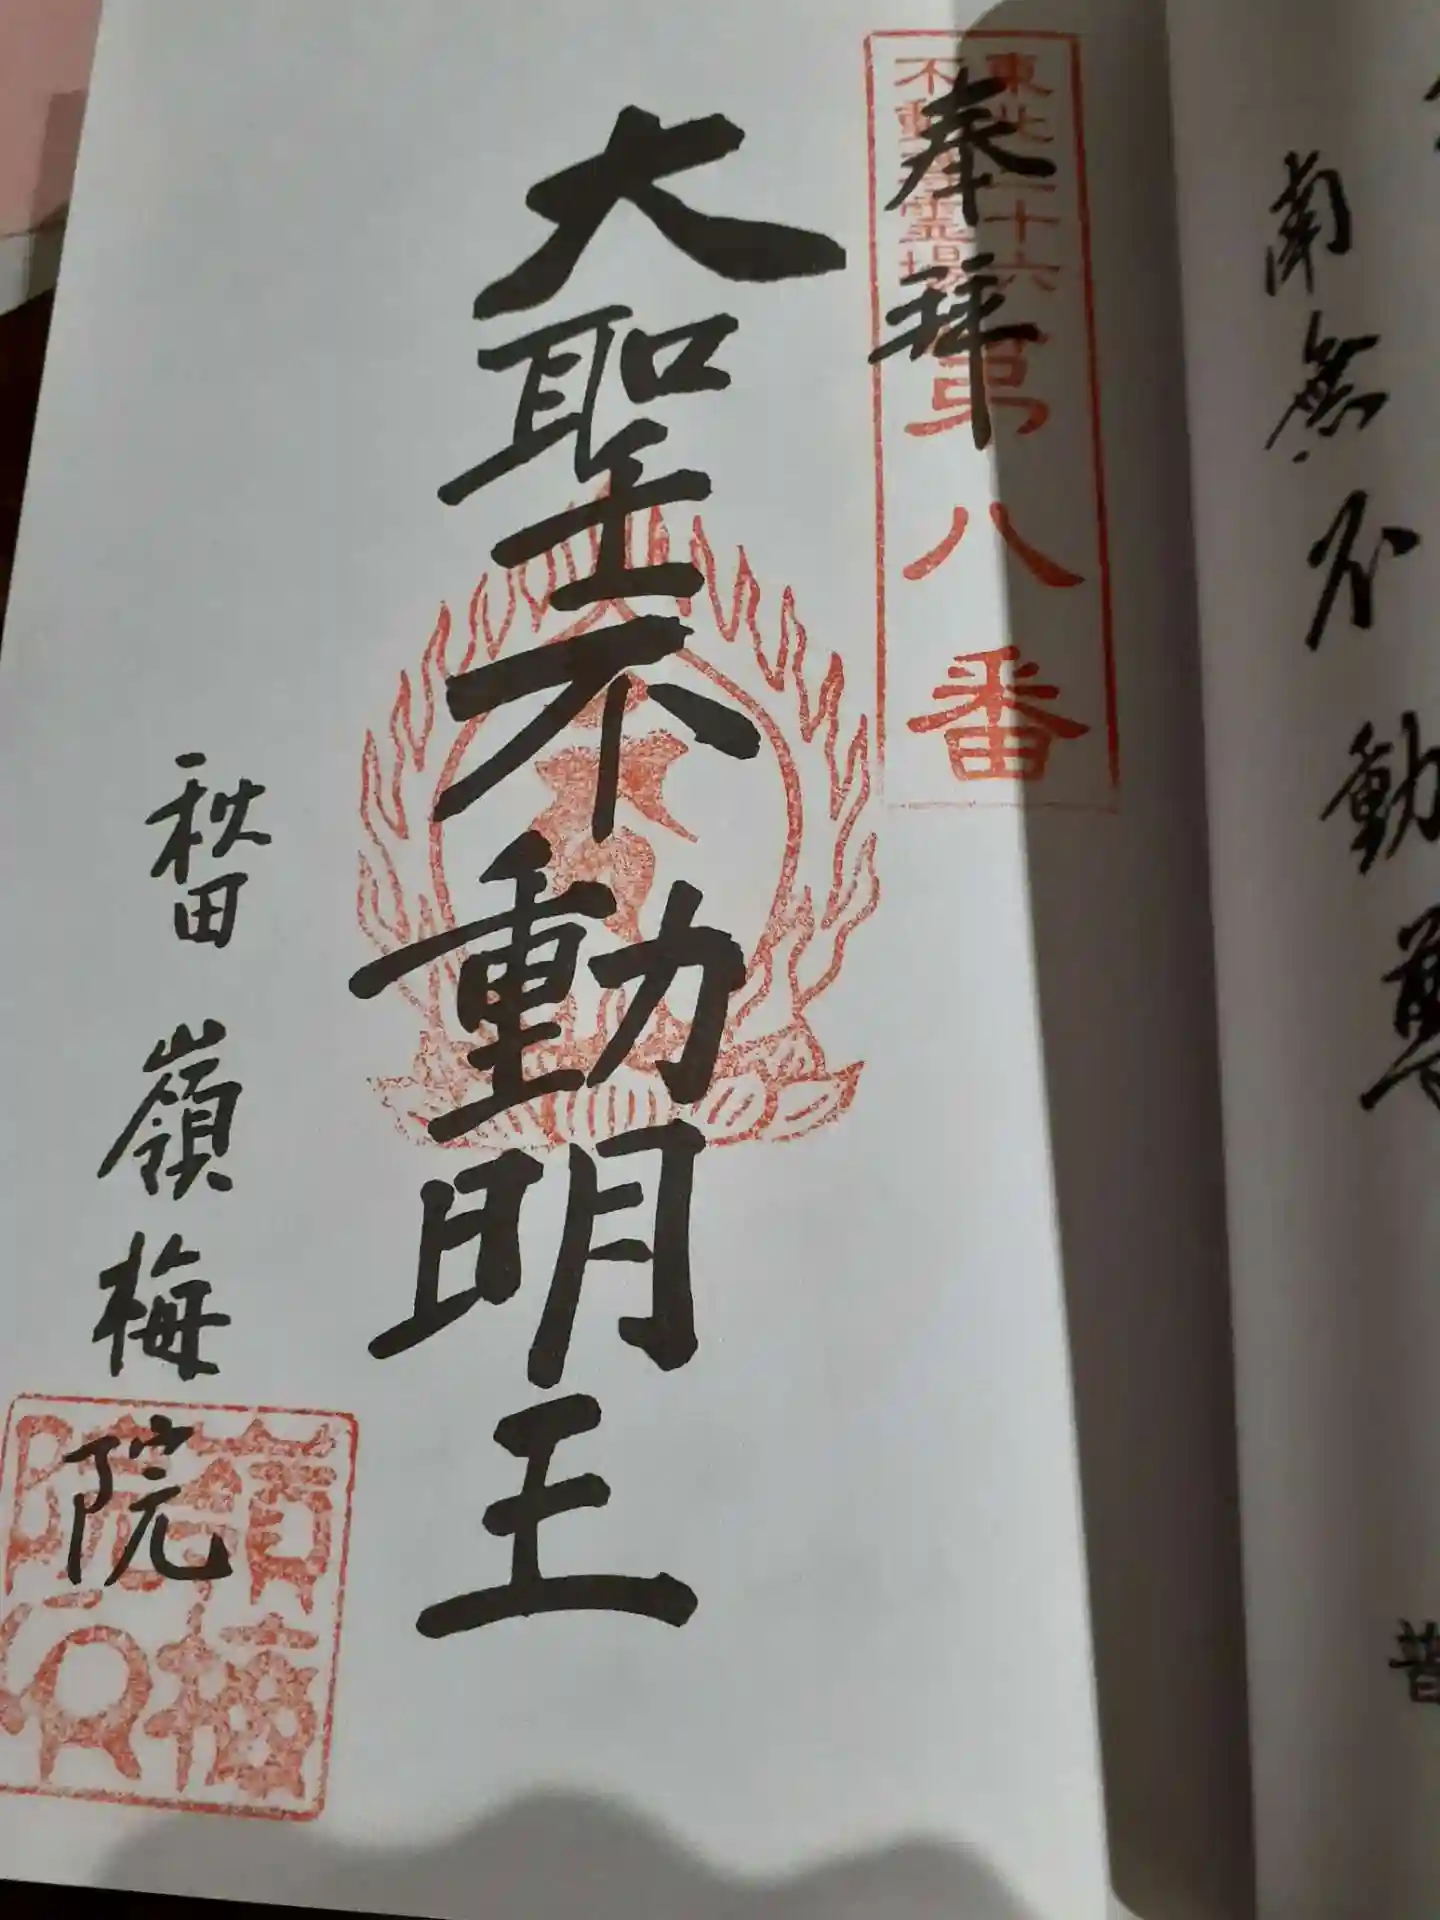 南無不動尊
昔
奉拝
東北三十六
不動尊霊場
第八番
大聖不動明王
秋田 嶺梅院
嶺梅院印